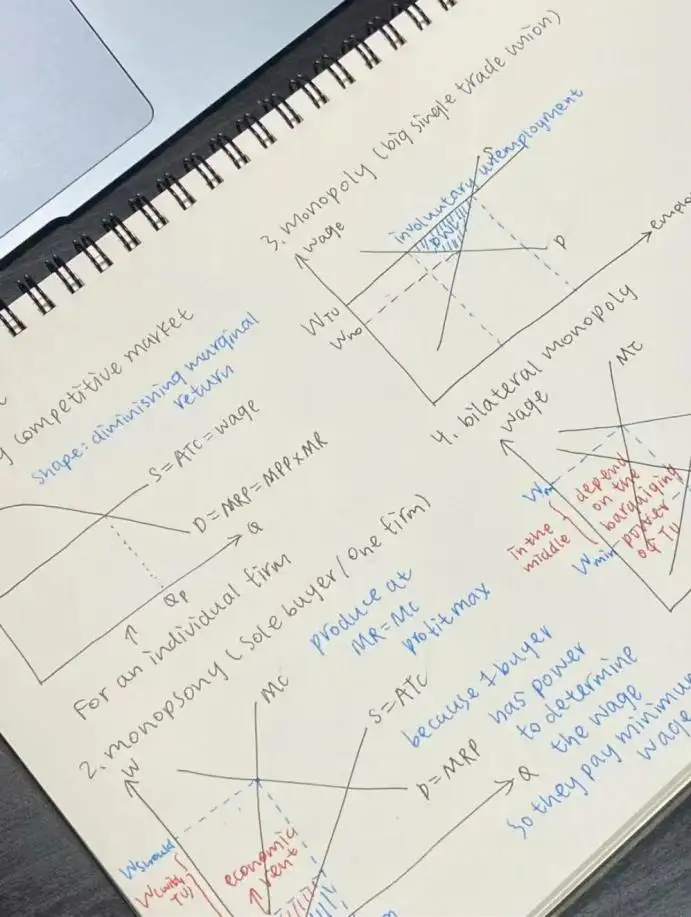 competitive market
shape: diminishing marginal
return
S = ATC = wage
D = MRP = MPP x MR
Q
QP
↑
For an individual firm
2. monopsony (sole buyer / one firm)
produce at
MR = MC
profit max
W
MC
S = ATC
D = MRP
Q
because 1 buyer
has power
to determine
the wage
so they pay minimum
wage
Wshould
W(with
TU)
economic
rent
3. monopoly (big single trade union)
wage
involuntary unemployment
S
D
WTU
Wno
4. bilateral monopoly
wage
MC
Wm
in the
middle
Wmin
depend
on the
bargaining
power
of TU